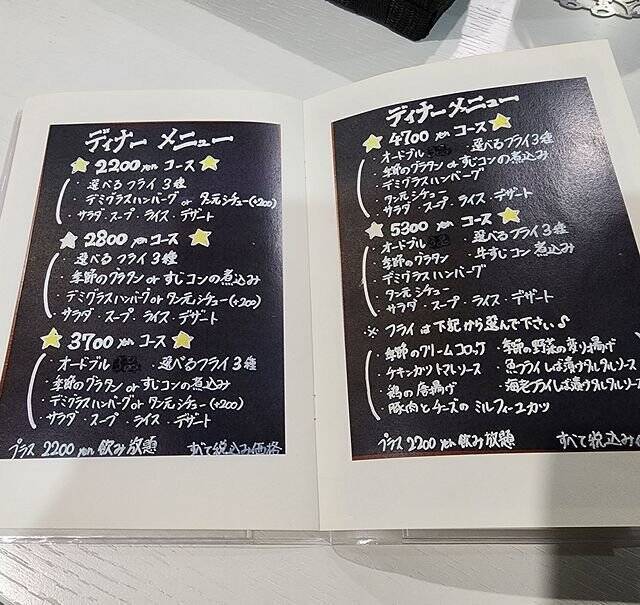 ディナー メニュー
2200 yen コース
・選べるフライ 3種
・デミグラスハンバーグ or タン元シチュー(+200)
サラダ・スープ・ライス・デザート
2800 yen コース
・選べるフライ3種
・季節のグラタン or すじコンの煮込み
・デミグラスハンバーグ or タン元シチュー(+200)
サラダ・スープ・ライス・デザート
3700 yen コース
・オードブル ・選べるフライ3種
・季節のグラタン or すじコンの煮込み
・デミグラスハンバーグ or タン元シチュー(+200)
サラダ・スープ・ライス・デザート
プラス 2200 yen 飲み放題 すべて税込み価格
ディナーメニュー
4700 yen コース
・オードブル ・選べるフライ3種
・季節のグラタン or すじコンの煮込み
・デミグラスハンバーグ
・タン元シチュー
サラダ・スープ・ライス・デザート
5300 yen コース
・オードブル ・選べるフライ3種
・季節のグラタン ・牛すじコン煮込み
・デミグラスハンバーグ
・タン元シチュー
サラダ・スープ・ライス・デザート
※ フライは下記から選んで下さい♪
・季節のクリームコロッケ ・季節の野菜の変り揚げ
・チキンカツトマトソース ・魚フライしば漬けタルタルソース
・鶏の唐揚げ ・海老フライしば漬けタルタルソース
・豚肉とチーズのミルフィーユカツ
プラス 2200 yen 飲み放題 すべて税込み